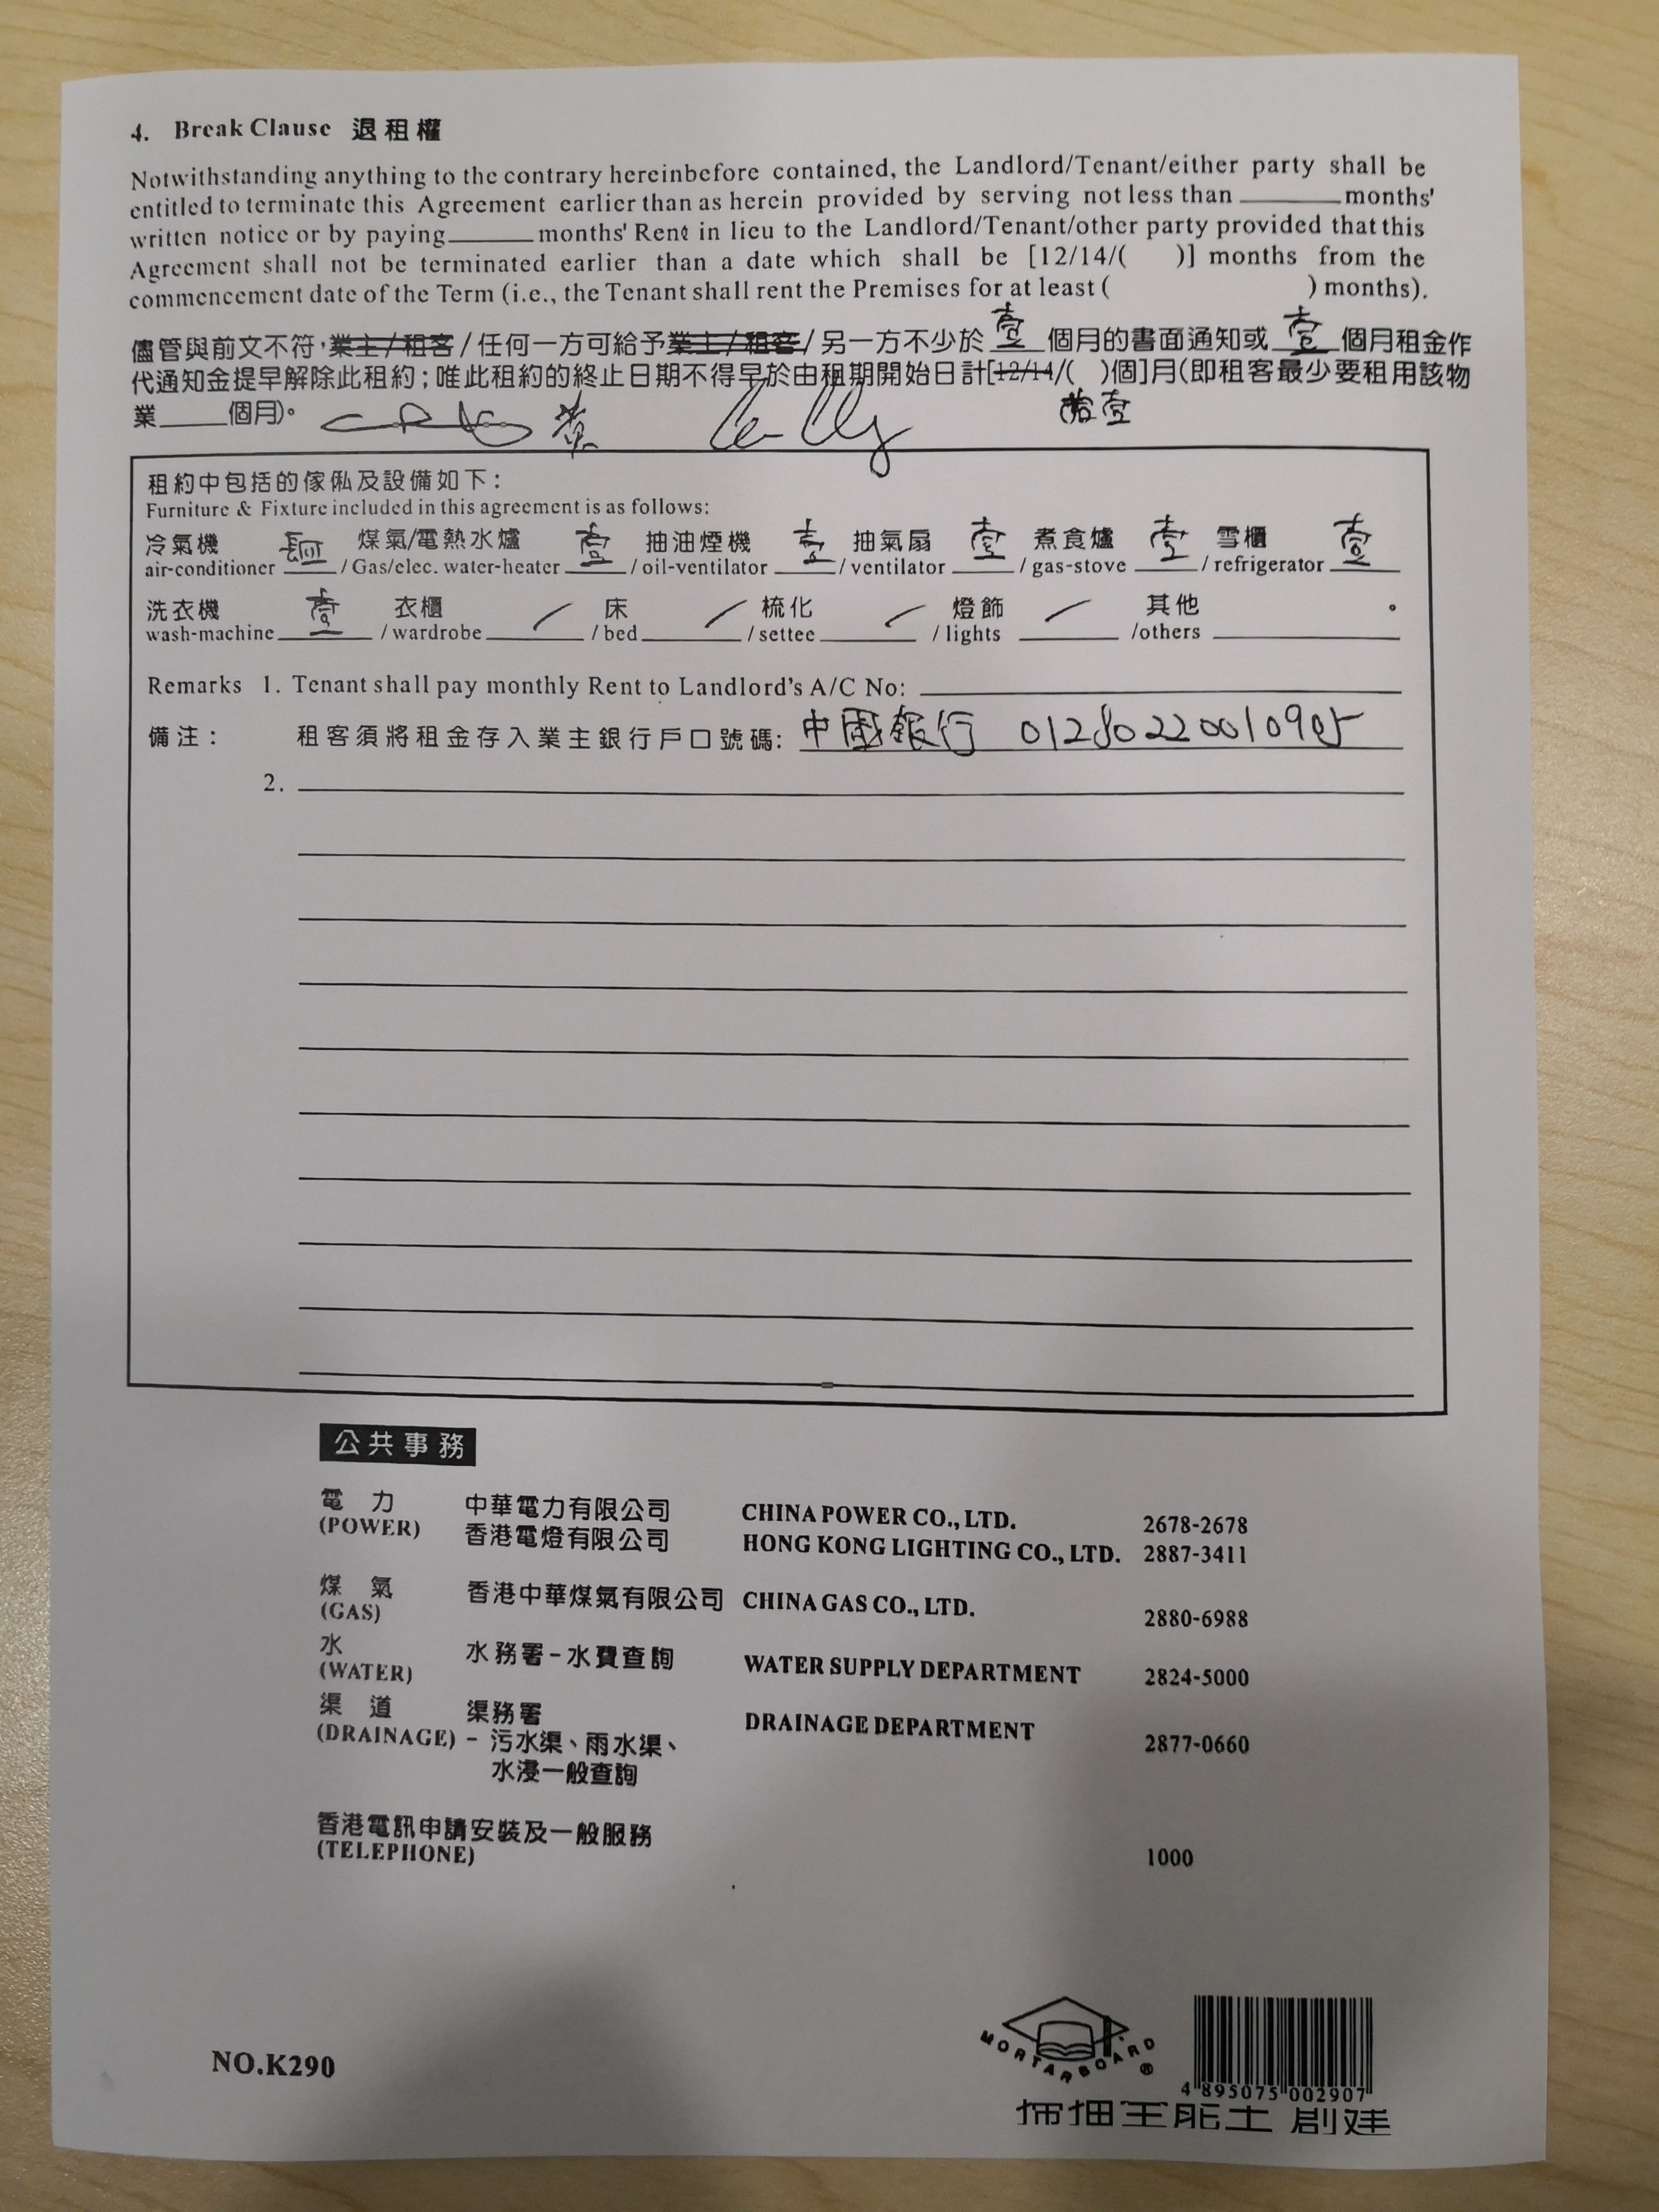 4. Break Clause 退租權
Notwithstanding anything to the contrary hereinbefore contained, the Landlord/Tenant/either party shall be
entitled to terminate this Agreement earlier than as herein provided by serving not less than ______ months'
written notice or by paying ______ months' Rent in lieu to the Landlord/Tenant/other party provided that this
Agreement shall not be terminated earlier than a date which shall be [12/14/( )] months from the
commencement date of the Term (i.e., the Tenant shall rent the Premises for at least ( ) months).
儘管與前文不符，業主/租客/任何一方可給予業主/租客/另一方不少於 壹 個月的書面通知或 壹 個月租金作
代通知金提早解除此租約；唯此租約的終止日期不得早於由租期開始日計[12/14/( )個]月(即租客最少要租用該物
業____個月)。 黄 拾壹
租約中包括的傢俬及設備如下：
Furniture & Fixture included in this agreement is as follows:
冷氣機 煤氣/電熱水爐 壹 抽油煙機 壹 抽氣扇 壹 煮食爐 壹 雪櫃 壹
air-conditioner ____ / Gas/elec. water-heater ____ / oil-ventilator ____ / ventilator ____ / gas-stove ____ / refrigerator ____
洗衣機 壹 衣櫃 床 梳化 燈飾 其他 。
wash-machine ____ / wardrobe ____ / bed ____ / settee ____ / lights ____ /others ____
Remarks 1. Tenant shall pay monthly Rent to Landlord's A/C No: ____
備注： 租客須將租金存入業主銀行戶口號碼: 中國銀行
2.
公共事務
電 力 中華電力有限公司 CHINA POWER CO., LTD. 2678-2678
(POWER) 香港電燈有限公司 HONG KONG LIGHTING CO., LTD. 2887-3411
煤 氣 香港中華煤氣有限公司 CHINA GAS CO., LTD. 2880-6988
(GAS)
水 水務署-水費查詢 WATER SUPPLY DEPARTMENT 2824-5000
(WATER)
渠 道 渠務署 DRAINAGE DEPARTMENT 2877-0660
(DRAINAGE) - 污水渠、雨水渠、
水浸一般查詢
香港電訊申請安裝及一般服務
(TELEPHONE) 1000
MORTARBOARD ®
NO.K290
4 895075 002907